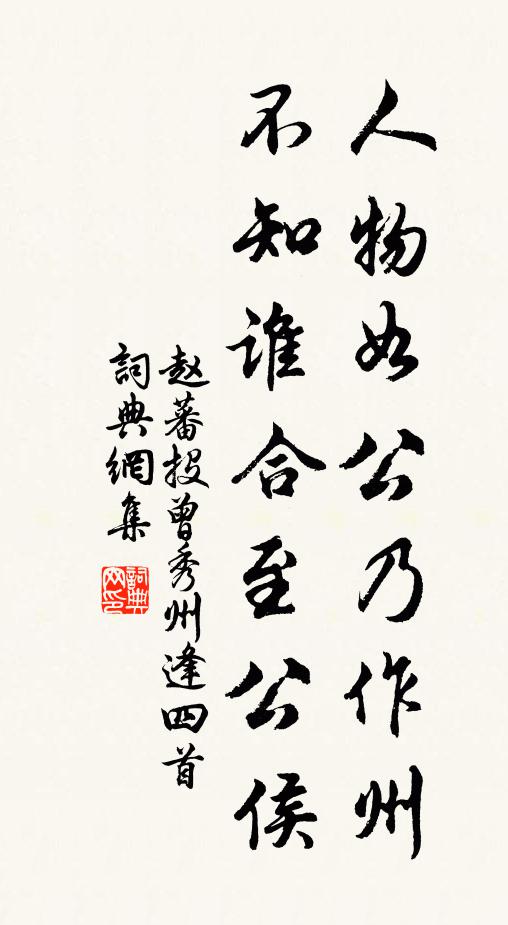 人物如公乃作州
不知谁合至公侯
赵蕃投曾秀州逢四首
詞典網集
詞典网印